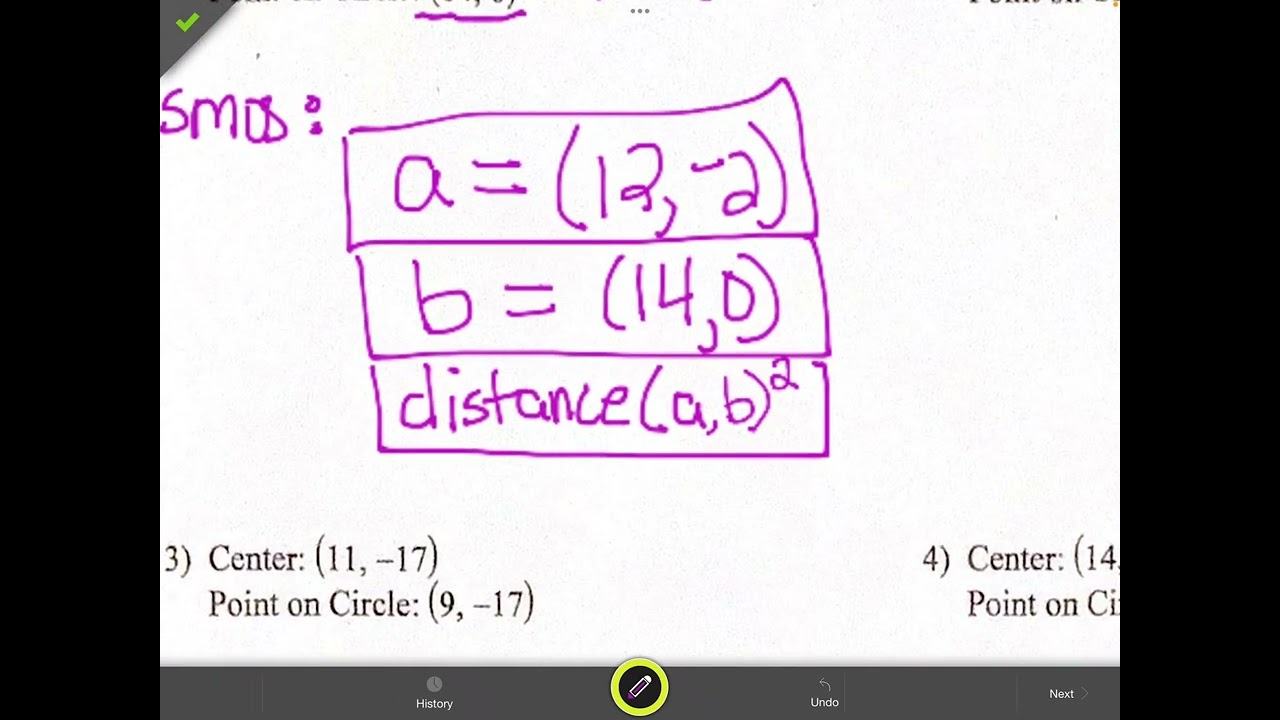 smos:
a = (12, -2)
b = (14, 0)
distance(a, b)²
3) Center: (11, –17)
4) Center: (14,
Point on Circle: (9, –17)
Point on Ci
History
Undo
Next